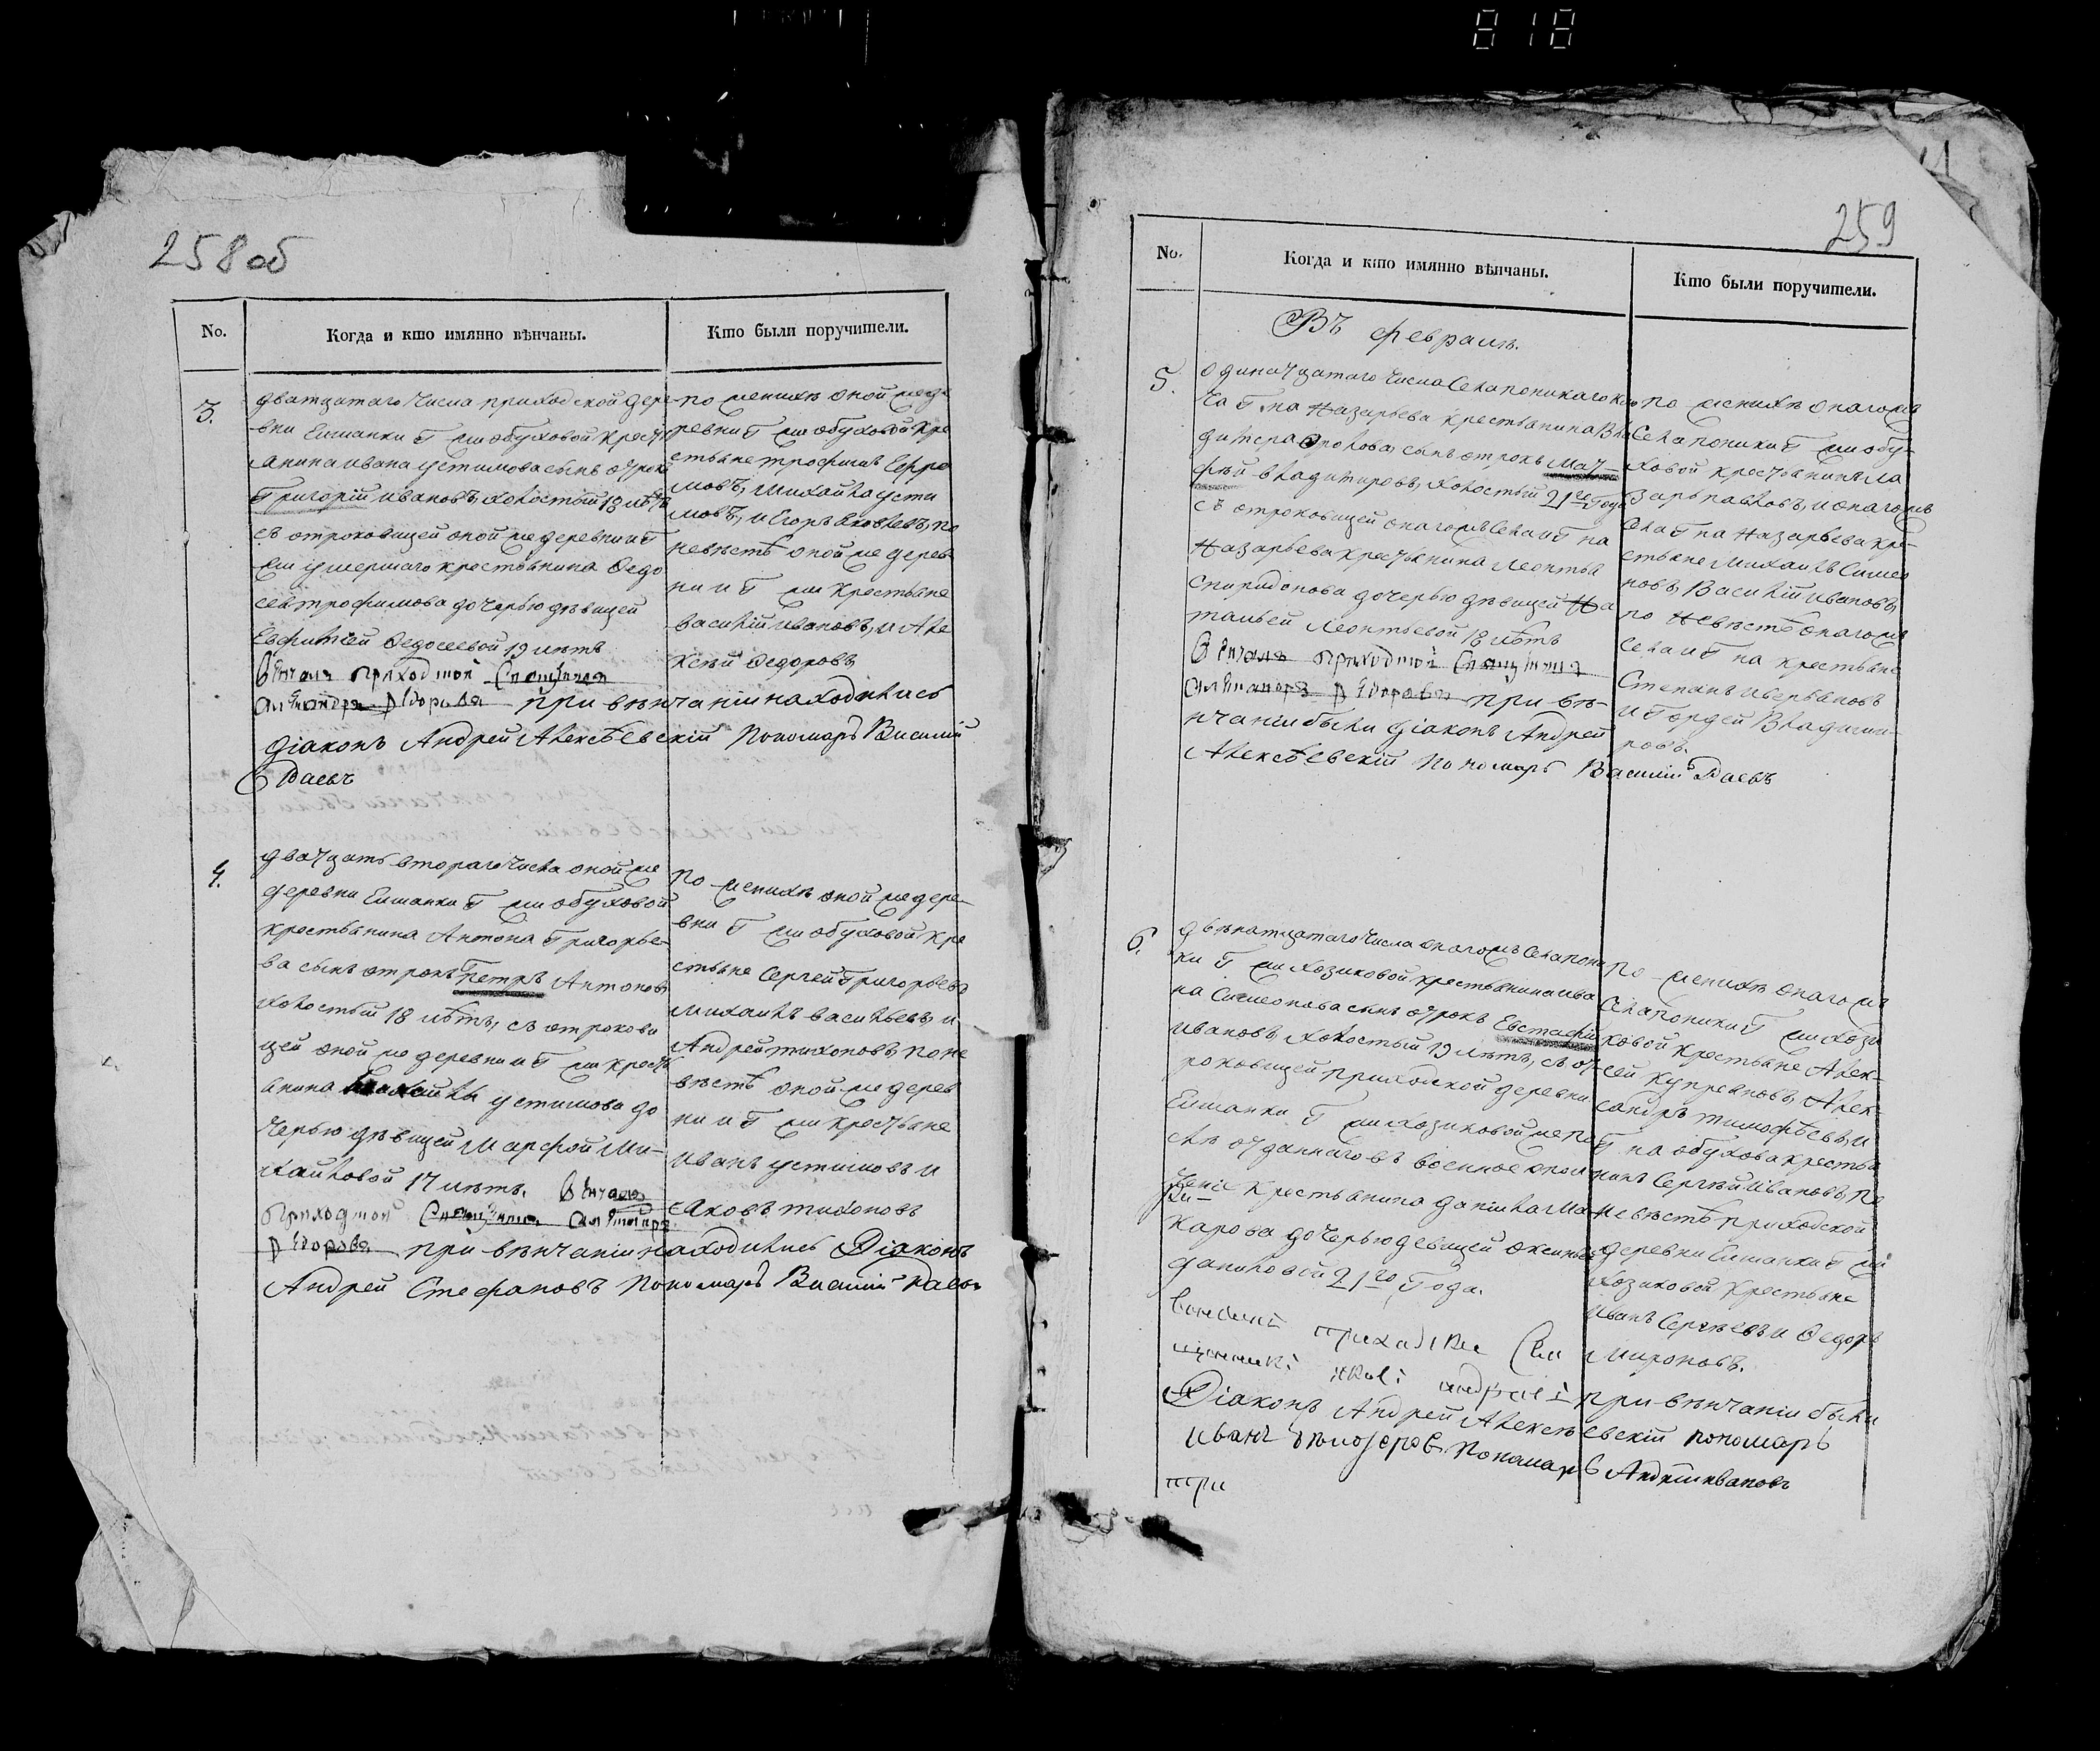 818
258 об
No.
Когда и кто имянно вѣнчаны.
Кто были поручители.
3.
дватцатаго числа приходской дере-
вни Ешанки Г жи обуховой крест
янина ивана устимова сынъ отрокъ
Григорій ивановъ, холостый 18 лѣтъ
съ отроковицей оной же деревни и Г
жи умершаго крестьянина Ѳедо
сея трофимова дочерью дѣвицей
Евфиміей Ѳедосеевой 19 лѣтъ
Венчалъ приходской Священникъ
Александръ Ѳедоровъ при вѣнчаніи находились
діаконъ Андрей Алексѣевскій Пономарь Василий
Раевъ
по женихѣ оной же де
ревни Г жи обуховой кре
стьяне трофимъ Ефре
мовъ, Михайла усти
мовъ, и Егоръ яковлевъ, по
невѣстѣ оной же дерев
ни и Г жи крестьяне
василій ивановъ, и Але
ксѣй Ѳедоровъ
4.
дватцать втораго числа оной же
деревни Ешанки Г жи обуховой
крестьянина Антона Григорье-
ва сынъ отрокъ Петръ Антоновъ
холостый 18 лѣтъ, съ отрокови
цей оной же деревни и Г жи крест
янина Михайлы устимова до
черью дѣвицей Марфой Ми-
хайловой 17 лѣтъ. Венчалъ
Приходской Священникъ Александръ
Ѳедоровъ при вѣнчаніи находились Діаконъ
Андрей Стефановъ Пономарь Василий Раевъ
по женихѣ оной же дере-
вни Г жи обуховой кре
стьяне Сергей Григорьевъ
михаилъ васильевъ, и
Андрей тихоновъ, по не
вѣстѣ оной же дерев
ни и Г жи крестьяне
иванъ устимовъ и
яковъ тихоновъ
259
No.
Когда и кто имянно вѣнчаны.
Кто были поручители.
Въ февралѣ.
5.
одинатцатаго числа Села поникаго
Г на Назарьева крестьянина Вла
димера сынъ отрокъ Мат-
фѣй владимировъ, холостый 21 го Года
съ отроковицей онагожъ Села и Г на
Назарьева крестьянина Леонтья
спиридонова дочерью дѣвицей На
тальей Леонтьевой 18 лѣтъ
Венчалъ приходской Священникъ
Александръ Ѳедоровъ при вѣ-
нчаніи были діаконъ Андрей
Алексѣевскій Пономарь Василий Раевъ
по женихѣ онагожъ
Села поники Г жи обу-
ховой крестьянинъ ла
зарь павловъ, и онагожъ
села Г на Назарьева кре-
стьяне михаилъ Симео
новъ, Василій ивановъ,
по невѣстѣ онагожъ
села и Г на крестьяне
Степанъ
и Гордей Владими-
ровъ.
6.
двенатцатаго числа онагожъ Села пони
ки Г жи Хозиковой крестьянина ива
на Симеонова сынъ отрокъ Евстафій
ивановъ, холостый 19 лѣтъ, съ от-
роковицей приходской деревни
Ешанки Г жи Хозиковой же по
слѣ отданнаго въ военное
крестьянина данилы Ма
карова дочерью девицей Оксиньей
даниловой 21 го Года.
приходские Свя
щенники андрей
Діаконъ Андрей Алексѣевскій пономарь
при вѣнчаніи были
иванъ Пономарь Андрей ивановъ
при
по женихѣ онагожъ
Села поники Г жи Хози
ковой крестьяне Алек-
сей купреяновъ, Алек-
сандръ тимофѣевъ, и
Г на обухова крестья
нинъ Сергѣй ивановъ, по
невѣстѣ приходской
деревни Ешанки Г жи
Хозиковой крестьяне
иванъ Сергѣевъ и Ѳедоръ
Мироновъ.